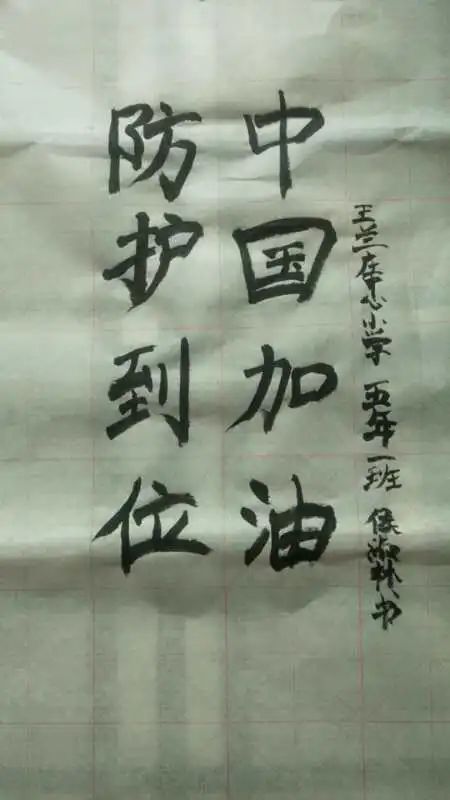 中国加油
防护到位
王兰庄中心小学 五年一班 侯淑林书